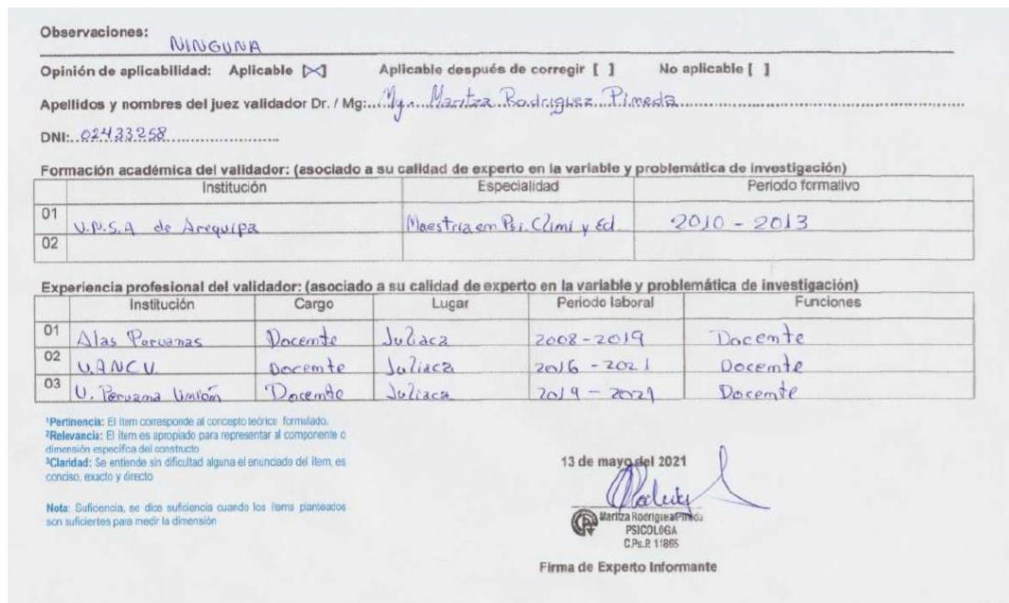 Observaciones: NINGUNA
Opinión de aplicabilidad: Aplicable [X] Aplicable después de corregir [ ] No aplicable [ ]
Apellidos y nombres del juez validador Dr. / Mg:....Mgr. Maritza Rodriguez Pineda
DNI:..02433258
Formación académica del validador: (asociado a su calidad de experto en la variable y problemática de investigación)
Institución Especialidad Periodo formativo
01 U.N.S.A de Arequipa Maestria en Psi. Clini y Ed. 2010 - 2013
02
Experiencia profesional del validador: (asociado a su calidad de experto en la variable y problemática de investigación)
Institución Cargo Lugar Periodo laboral Funciones
01 Alas Peruanas Docente Juliaca 2008 - 2019 Docente
02 U.A.N.C.V. Docente Juliaca 2016 - 2021 Docente
03 U. Peruana Unión Docente Juliaca 2019 - 2021 Docente
¹Pertinencia: El ítem corresponde al concepto teórico formulado.
²Relevancia: El ítem es apropiado para representar al componente o
dimensión específica del constructo
³Claridad: Se entiende sin dificultad alguna el enunciado del ítem, es
conciso, exacto y directo
Nota: Suficiencia, se dice suficiencia cuando los ítems planteados
son suficientes para medir la dimensión
13 de mayo del 2021
Maritza Rodriguez Pineda
PSICÓLOGA
C.Ps.P. 11865
Firma de Experto Informante